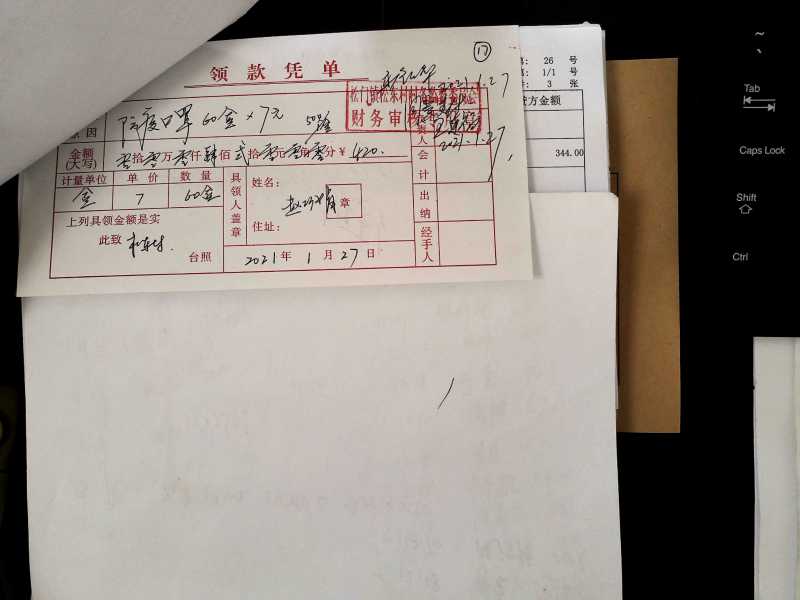 ⑰
领款凭单
2021.1.27
松门镇松东村村务监督委员会
财务审核
原因
防疫口罩 60盒×7元
负责人
2021.1.27
金额
(大写)
零拾零万零仟肆佰弍拾零元零角零分￥420.
会计
计量单位 单价 数量
盒 7 60盒
具领人盖章
姓名:
章
住址:
出纳
上列具领金额是实
此致
台照
2021年1月27日
经手人
26 号
1/1 号
3 张
贷方金额
344.00
~
、
Tab
Caps Lock
Shift
Ctrl